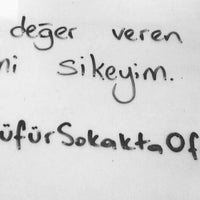 değer veren
ni sikeyim.
üfürSokaktaOf